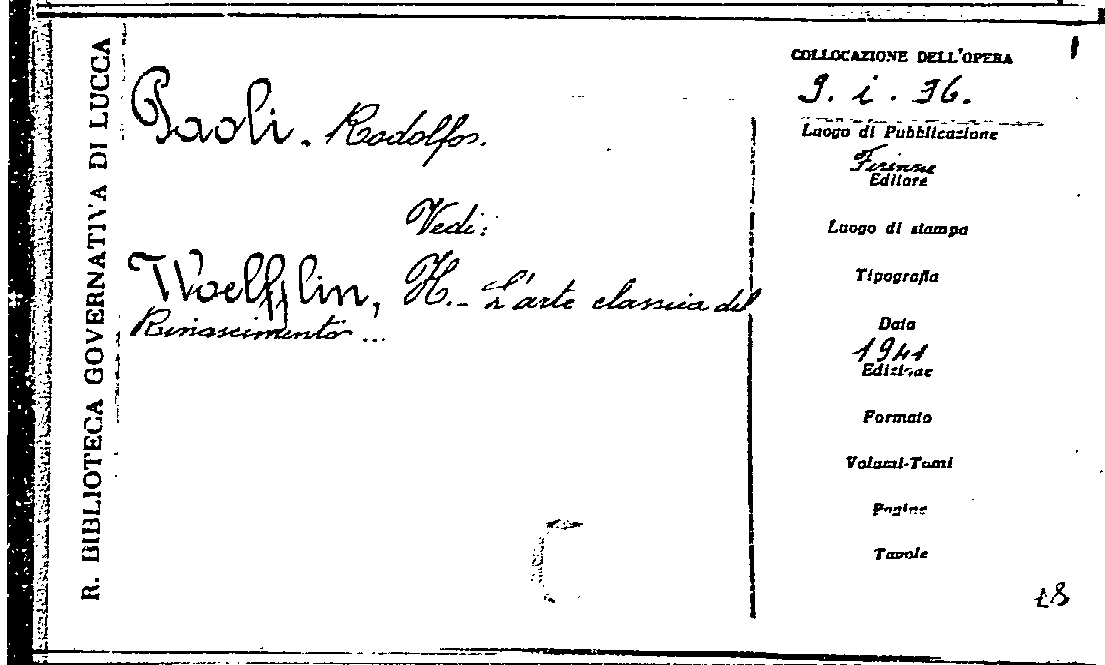 R. BIBLIOTECA GOVERNATIVA DI LUCCA
Paoli. Rodolfo.
Vedi:
Woelfflin, H. - L'arte classica del
Rinascimento ...
COLLOCAZIONE DELL'OPERA
9. i. 36.
Luogo di Pubblicazione
Firenze
Editore
Luogo di stampa
Tipografia
Data
1941
Edizione
Formato
Volumi-Tomi
Pagine
Tavole
18